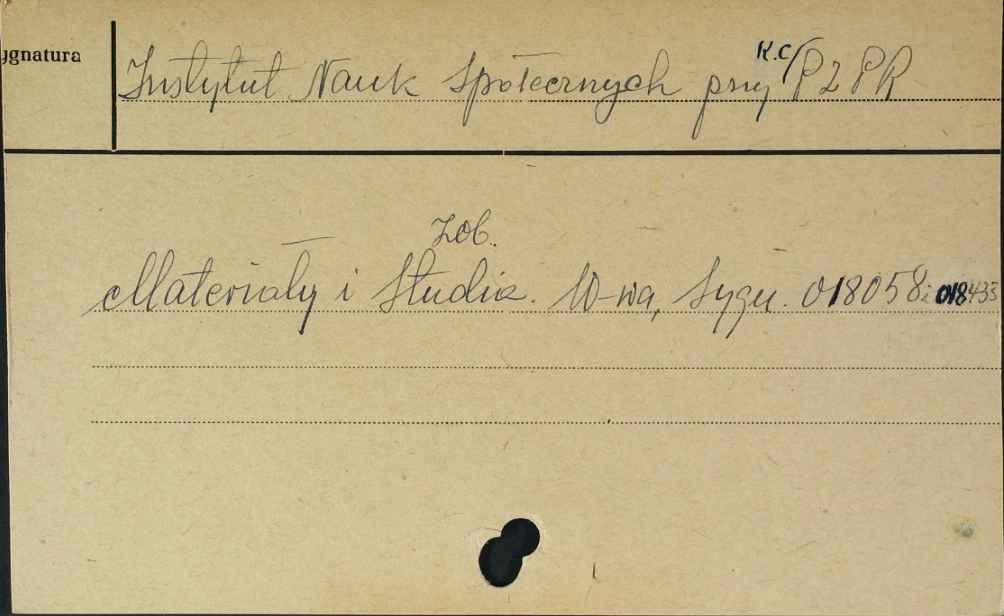 ygnatura
Instytut Nauk Społecznych przy K.C/PZPR
zob.
Materiały i Studia. W-wa, Sygn. 018058 i 018433